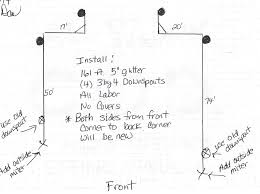 17'
20'
Install:
161 ft 5" gutter
(4) 3 by 4 Downspouts
All Labor
No Covers
* Both sides from front
corner to back corner
will be new
50'
74'
use old
downspout
Add outside
miter
use old
downspout
Add outside
miter
Front